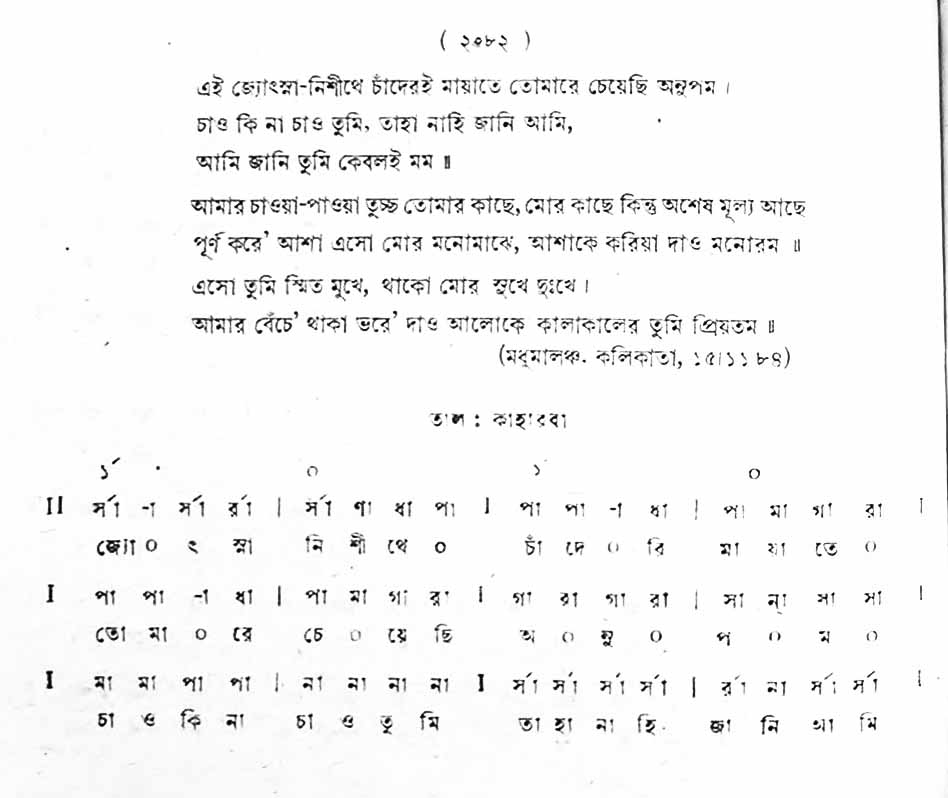 ( ২০৮২ )
এই জ্যোৎস্না-নিশীথে চাঁদেরই মায়াতে তোমারে চেয়েছি অনুপম ।
চাও কি না চাও তুমি, তাহা নাহি জানি আমি,
আমি জানি তুমি কেবলই মম ॥
আমার চাওয়া-পাওয়া তুচ্ছ তোমার কাছে, মোর কাছে কিন্তু অশেষ মূল্য আছে
পূর্ণ করে’ আশা এসো মোর মনোমাঝে, আশাকে করিয়া দাও মনোরম ॥
এসো তুমি স্মিত মুখে, থাকো মোর সুখে দুঃখে ।
আমার বেঁচে’ থাকা ভরে’ দাও আলোকে কালাকালের তুমি প্রিয়তম ॥
(মধুমালঞ্চ. কলিকাতা, ১৫/১১ ৮৪)
তাল : কাহারবা
১´ ০ ১ ০
II র্সা -া র্সা র্রা | র্সা ণা ধা পা I পা পা -া ধা | পা মা গা রা I
জ্যো ০ ৎ স্না নি শী থে ০ চাঁ দে ০ রি মা যা তে ০
I পা পা -া ধা | পা মা গা রা I গা রা গা রা | সা ন্া সা সা I
তো মা ০ রে চে ০ য়ে ছি অ ০ নু ০ প ০ ম ০
I মা মা পা পা | না না না না I র্সা র্সা র্সা র্সা | র্রা না র্সা র্সা I
চা ও কি না চা ও তু মি তা হা না হি জা নি আ মি